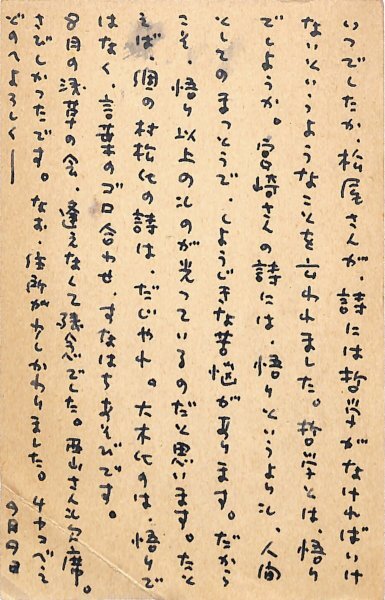 いつでしたか、松尾さんが、詩には哲学がなければいけ
ないというようなことを云われました。哲学とは、悟り
でしようか。宮崎さんの詩には、悟りというよりも、人間
としてのまっとうで、しようじきな苦悩があります。だから
こそ、悟り以上のものが光っているのだと思います。たと
えば、 の村松氏の詩は、だじゃれ。大木氏のは、悟りで
はなく、言葉のゴロ合わせ、すなはちあそびです。
8月の浅草の会、逢えなくて残念でした。西山さんも欠席。
さびしかったです。なお、住所がわしかわりました。
どのへよろしく――
9月9日